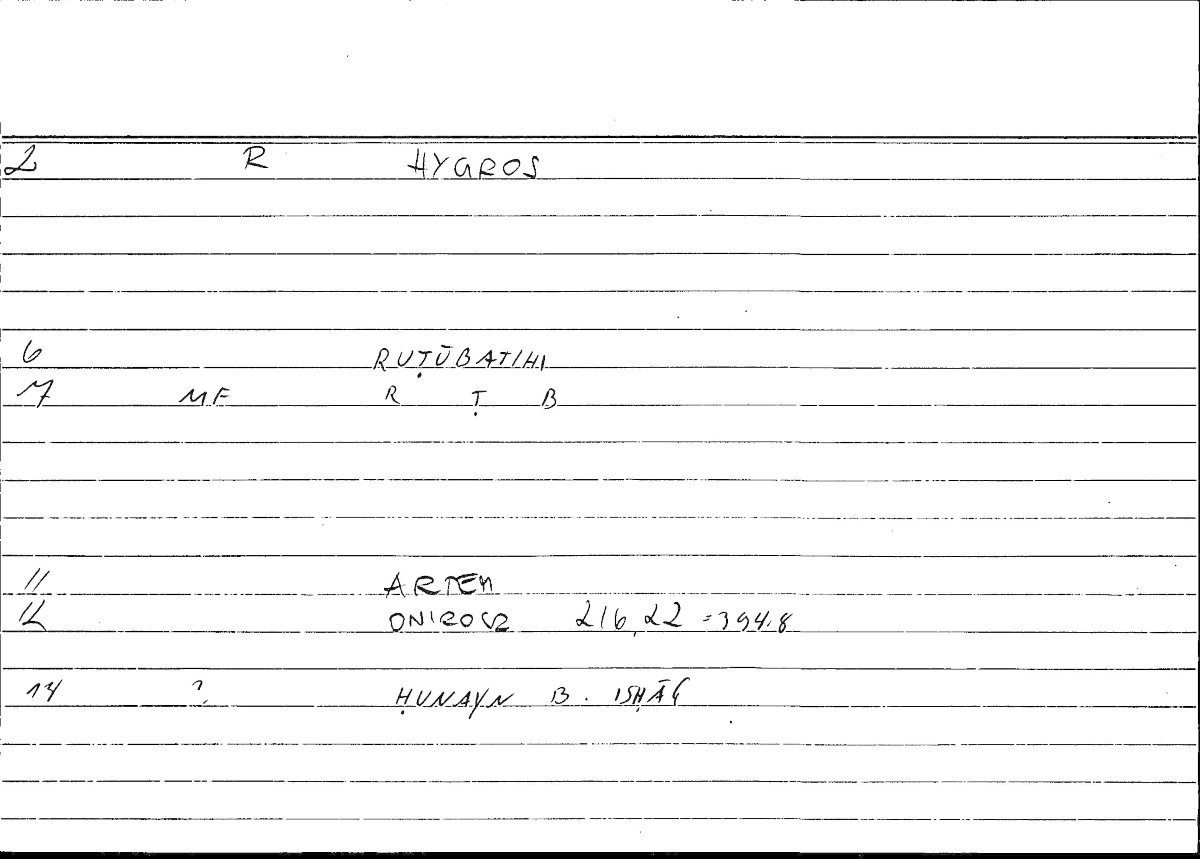 2 R HYGROS
6 RUṬŪBATIHI
7 MF R Ṭ B
11 ARTEM
12 ONIROCR 216,22 = 394.8
14 ? ḤUNAYN B. ISḤĀQ